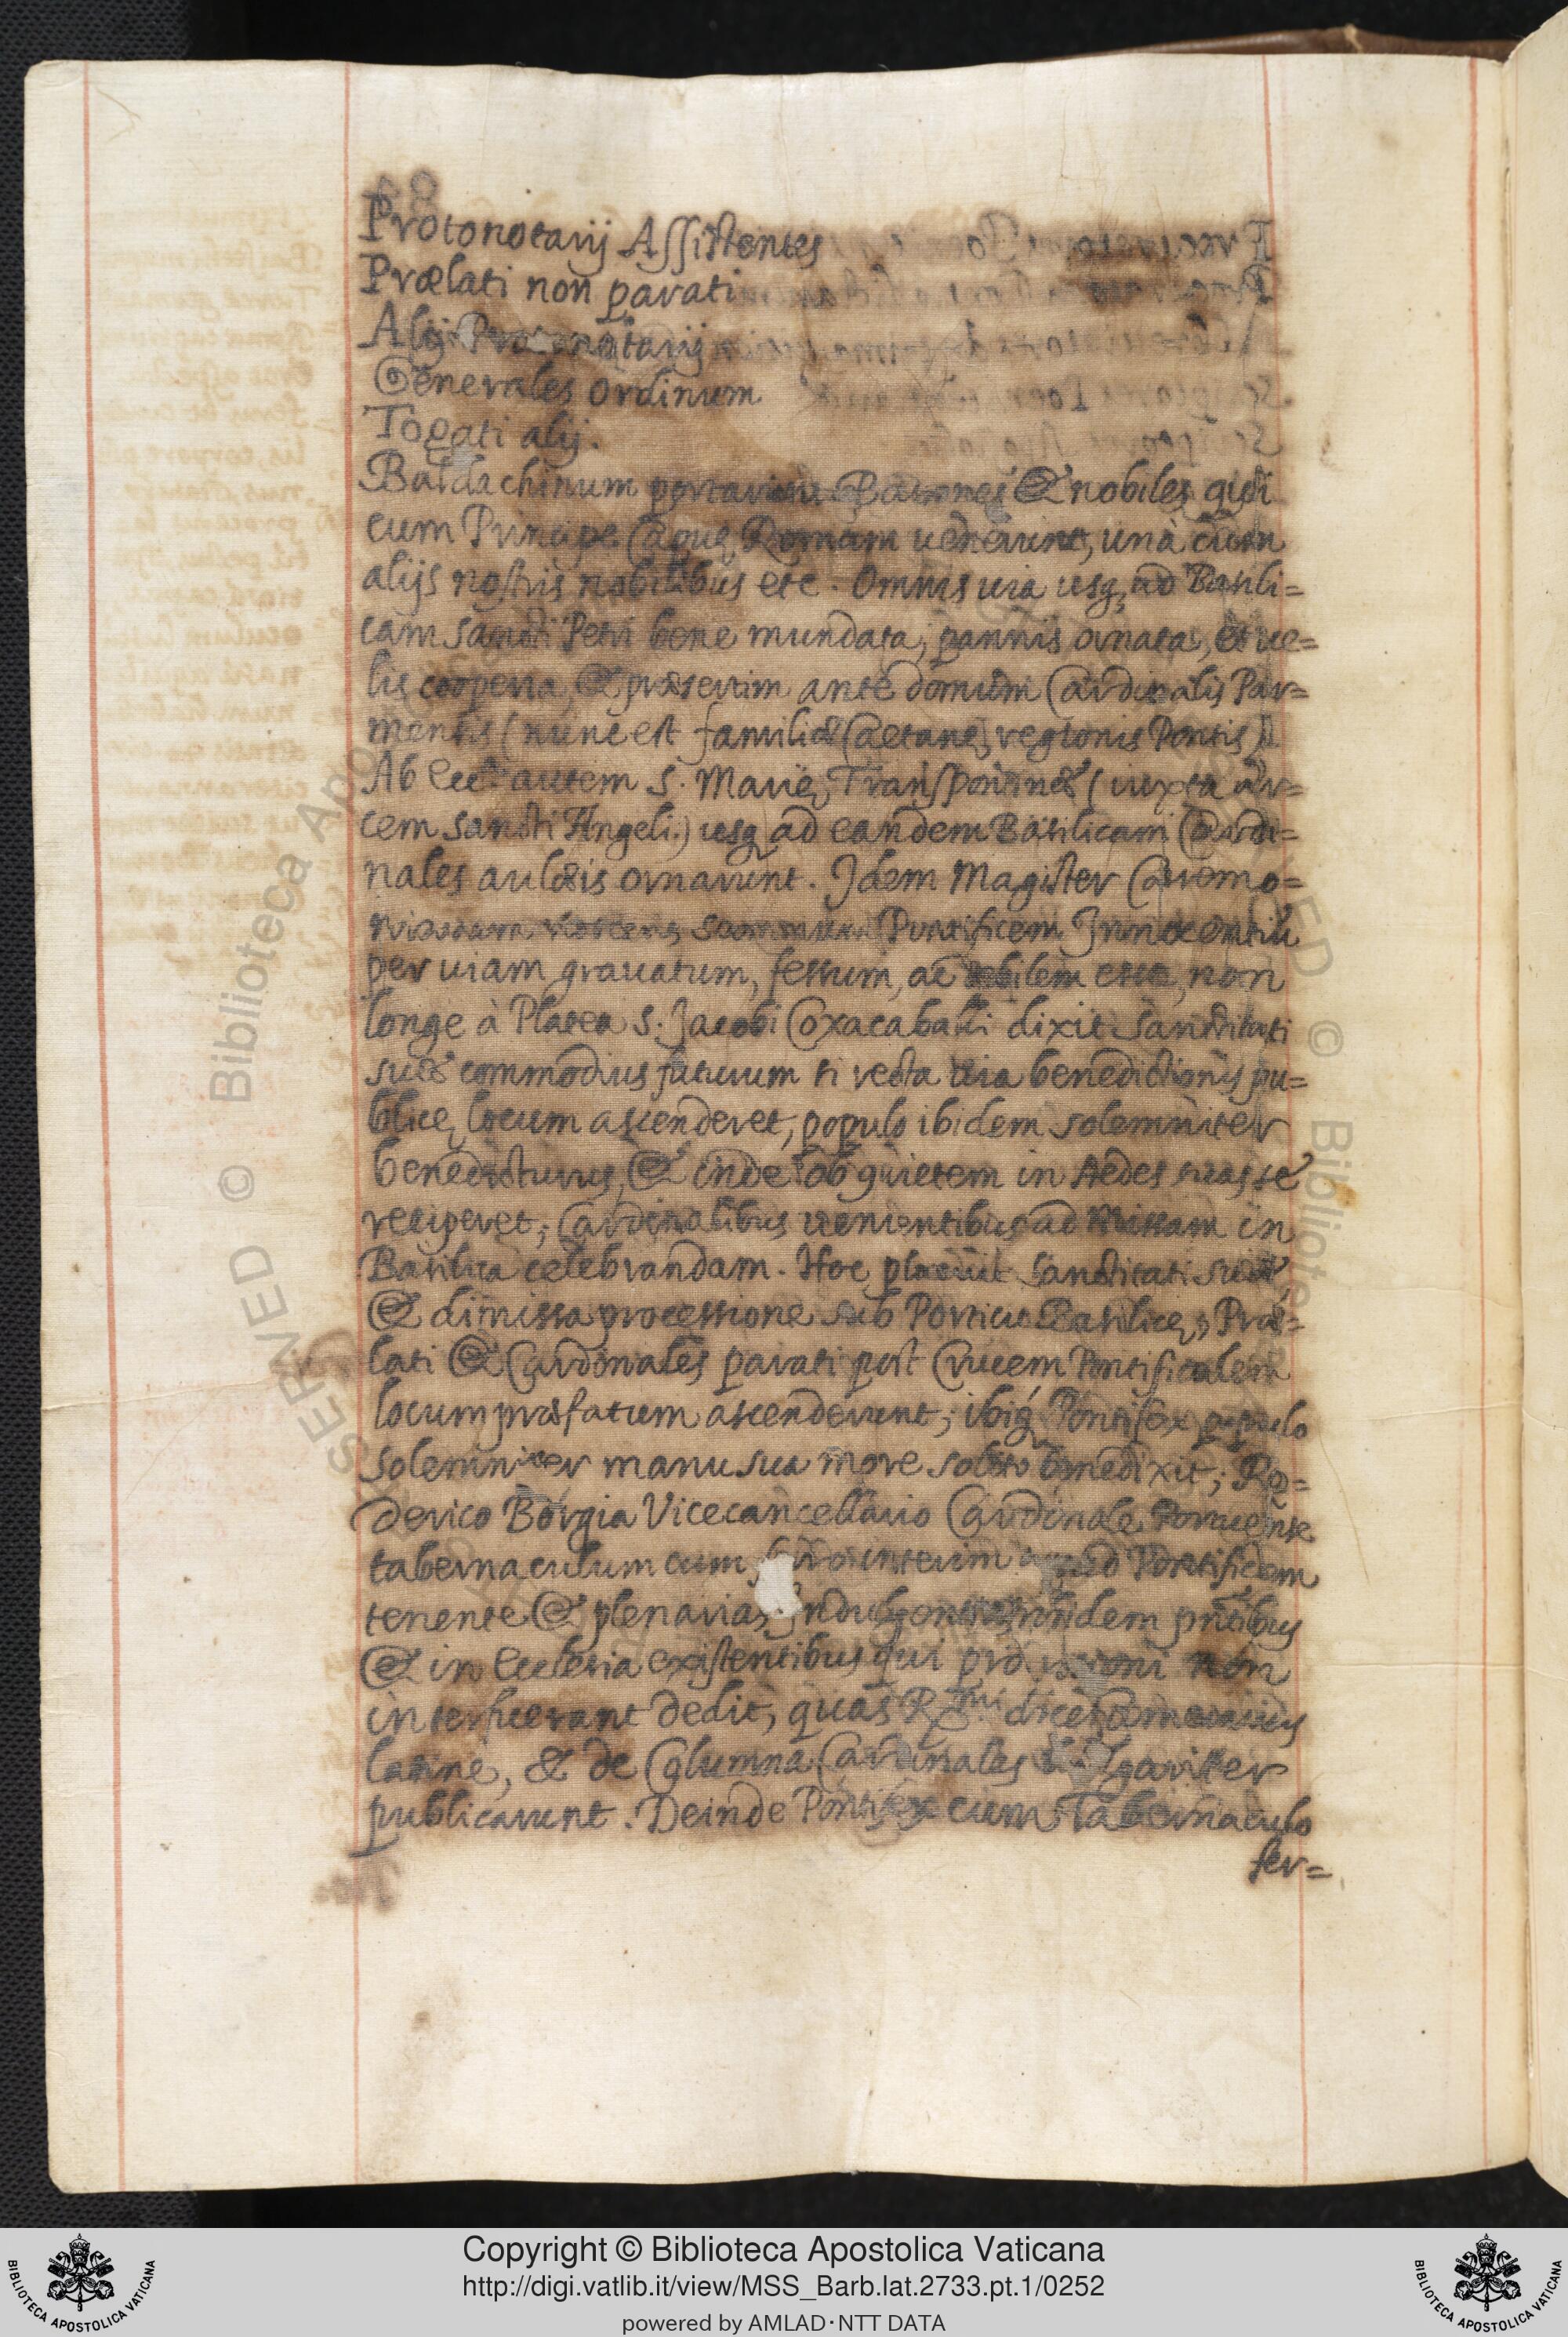 Protonotarij Assistentes
Prælati non parati
Alij Protonotarij
Generales Ordinum
Togati alij.
Baldachinum portarunt Barones & nobiles qui
cum Principe Capuę Romam uenerunt, unà cum
alijs nostris nobilibus etc. Omnis uia usq, ad Basili=
cam sancti Petri bene mundata, pannis ornata, et ue=
lis cooperta, & præsertim ante domum Cardinalis Par=
mensis (nunc est familiæ Caetanę regionis Pontis)
Ab Eccl. autem S. Marię Transpontinæ (iuxta Ar=
cem sancti Angeli) usq ad eandem Basilicam Cardi=
nales aulæis ornarunt. Idem Magister Cæremo=
niarum summum Pontificem Innocentiũ
per uiam grauatum, fessum, ac debilem esse, non
longe à Platea S. Jacobi Coxacaballi dixit Sanctitati
suæ commodius futurum si recta uia benedictionis pu=
blicę locum ascenderet, populo ibidem solemniter
benedicturus, & inde ob quietem in Aedes suas se
reciperet; Cardinalibus uenientibus ad Missam in
Basilica celebrandam. Hoc placuit Sanctitati suæ,
& dimissa processione sub Porticu Basilicę, Præ=
lati & Cardinales parati post Crucem Pontificalem
locum præfatum ascenderunt; ibiq, Pontifex populo
solemniter manu sua more solito benedixit; Ro=
derico Borgia Vicecancellario Cardinale Portuense
tabernaculum cum interim Pontificem
tenente & plenarias Indulgentias ibidem pñtibus
& in Ecclesia existentibus qui non
interfuerant dedit, quas Rmi dicti Camerarius
latine, & de Columna Cardinales uulgariter
publicarunt. Deinde Pontifex cum Tabernaculo
fer=
Copyright © Biblioteca Apostolica Vaticana
http://digi.vatlib.it/view/MSS_Barb.lat.2733.pt.1/0252
powered by AMLAD·NTT DATA
BIBLIOTECA APOSTOLICA VATICANA
BIBLIOTECA APOSTOLICA VATICANA